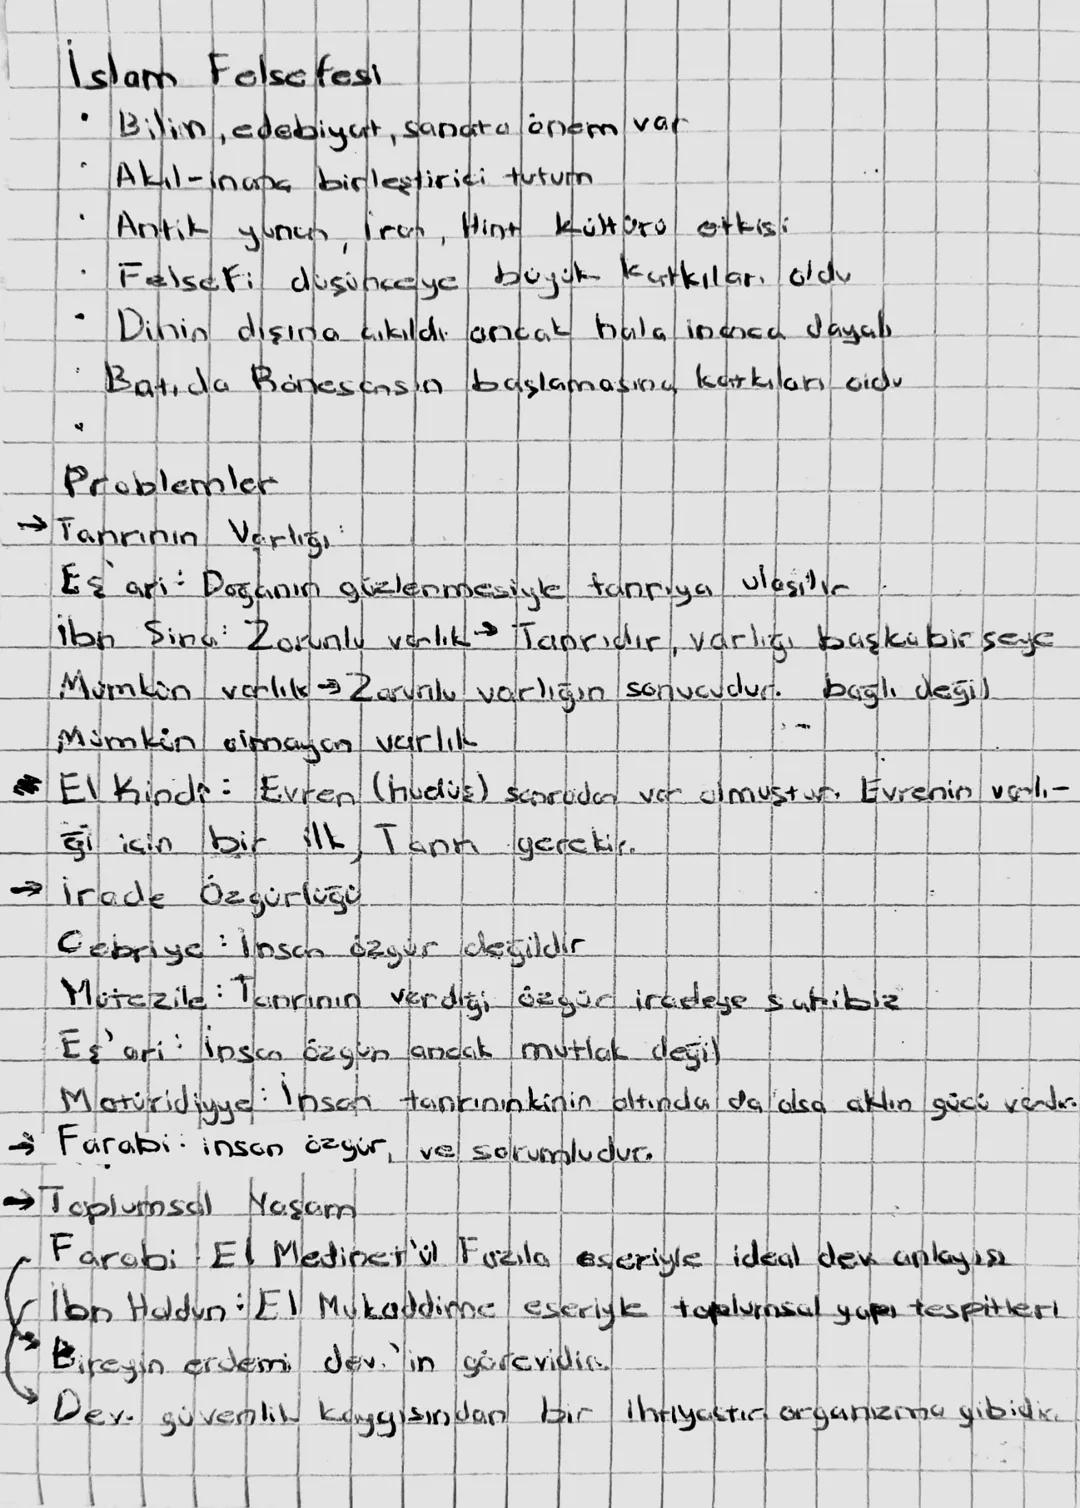 İslam Felsefesi
• Bilim, edebiyat, sanata önem var
• Akıl-inanç birleştirici tutum
• Antik yunan, İran, Hint kültürü etkisi
• Felsefi düşünceye büyük katkıları oldu
• Dinin dışına çıkıldı ancak hala inanca dayalı
• Batıda Rönesansın başlamasına katkıları oldu
•
Problemler
→ Tanrının Varlığı:
Eş'ari: Doğanın gözlenmesiyle tanrıya ulaşılır
İbn Sina: Zorunlu varlık → Tanrıdır, varlığı başka bir şeye
Mümkün varlık → Zorunlu varlığın sonucudur. bağlı değil
Mümkün olmayan varlık
El Kindi: Evren (hudüs) sonradan var olmuştur. Evrenin varlı-
ği için bir ilk, Tanrı gerekir.
→ İrade Özgürlüğü
Cebriye: İnsan özgür değildir
Mütezile: Tanrının verdiği özgür iradeye sahibiz
Eş'ari: İnsan özgün ancak mutlak değil
Matüridiyye: İnsan tanrınınkinin altında da olsa aklın gücü vardır.
→ Farabi: insan özgür, ve sorumludur.
→ Toplumsal Yaşam
Farabi: El Medinet'ül Fazıla eseriyle ideal dev. anlayışı
İbn Haldun: El Mukaddime eseriyle toplumsal yapı tespitleri
Bireyin erdemi dev.'in görevidir.
Dev. güvenlik kaygısından bir ihtiyaçtır organizma gibidir.